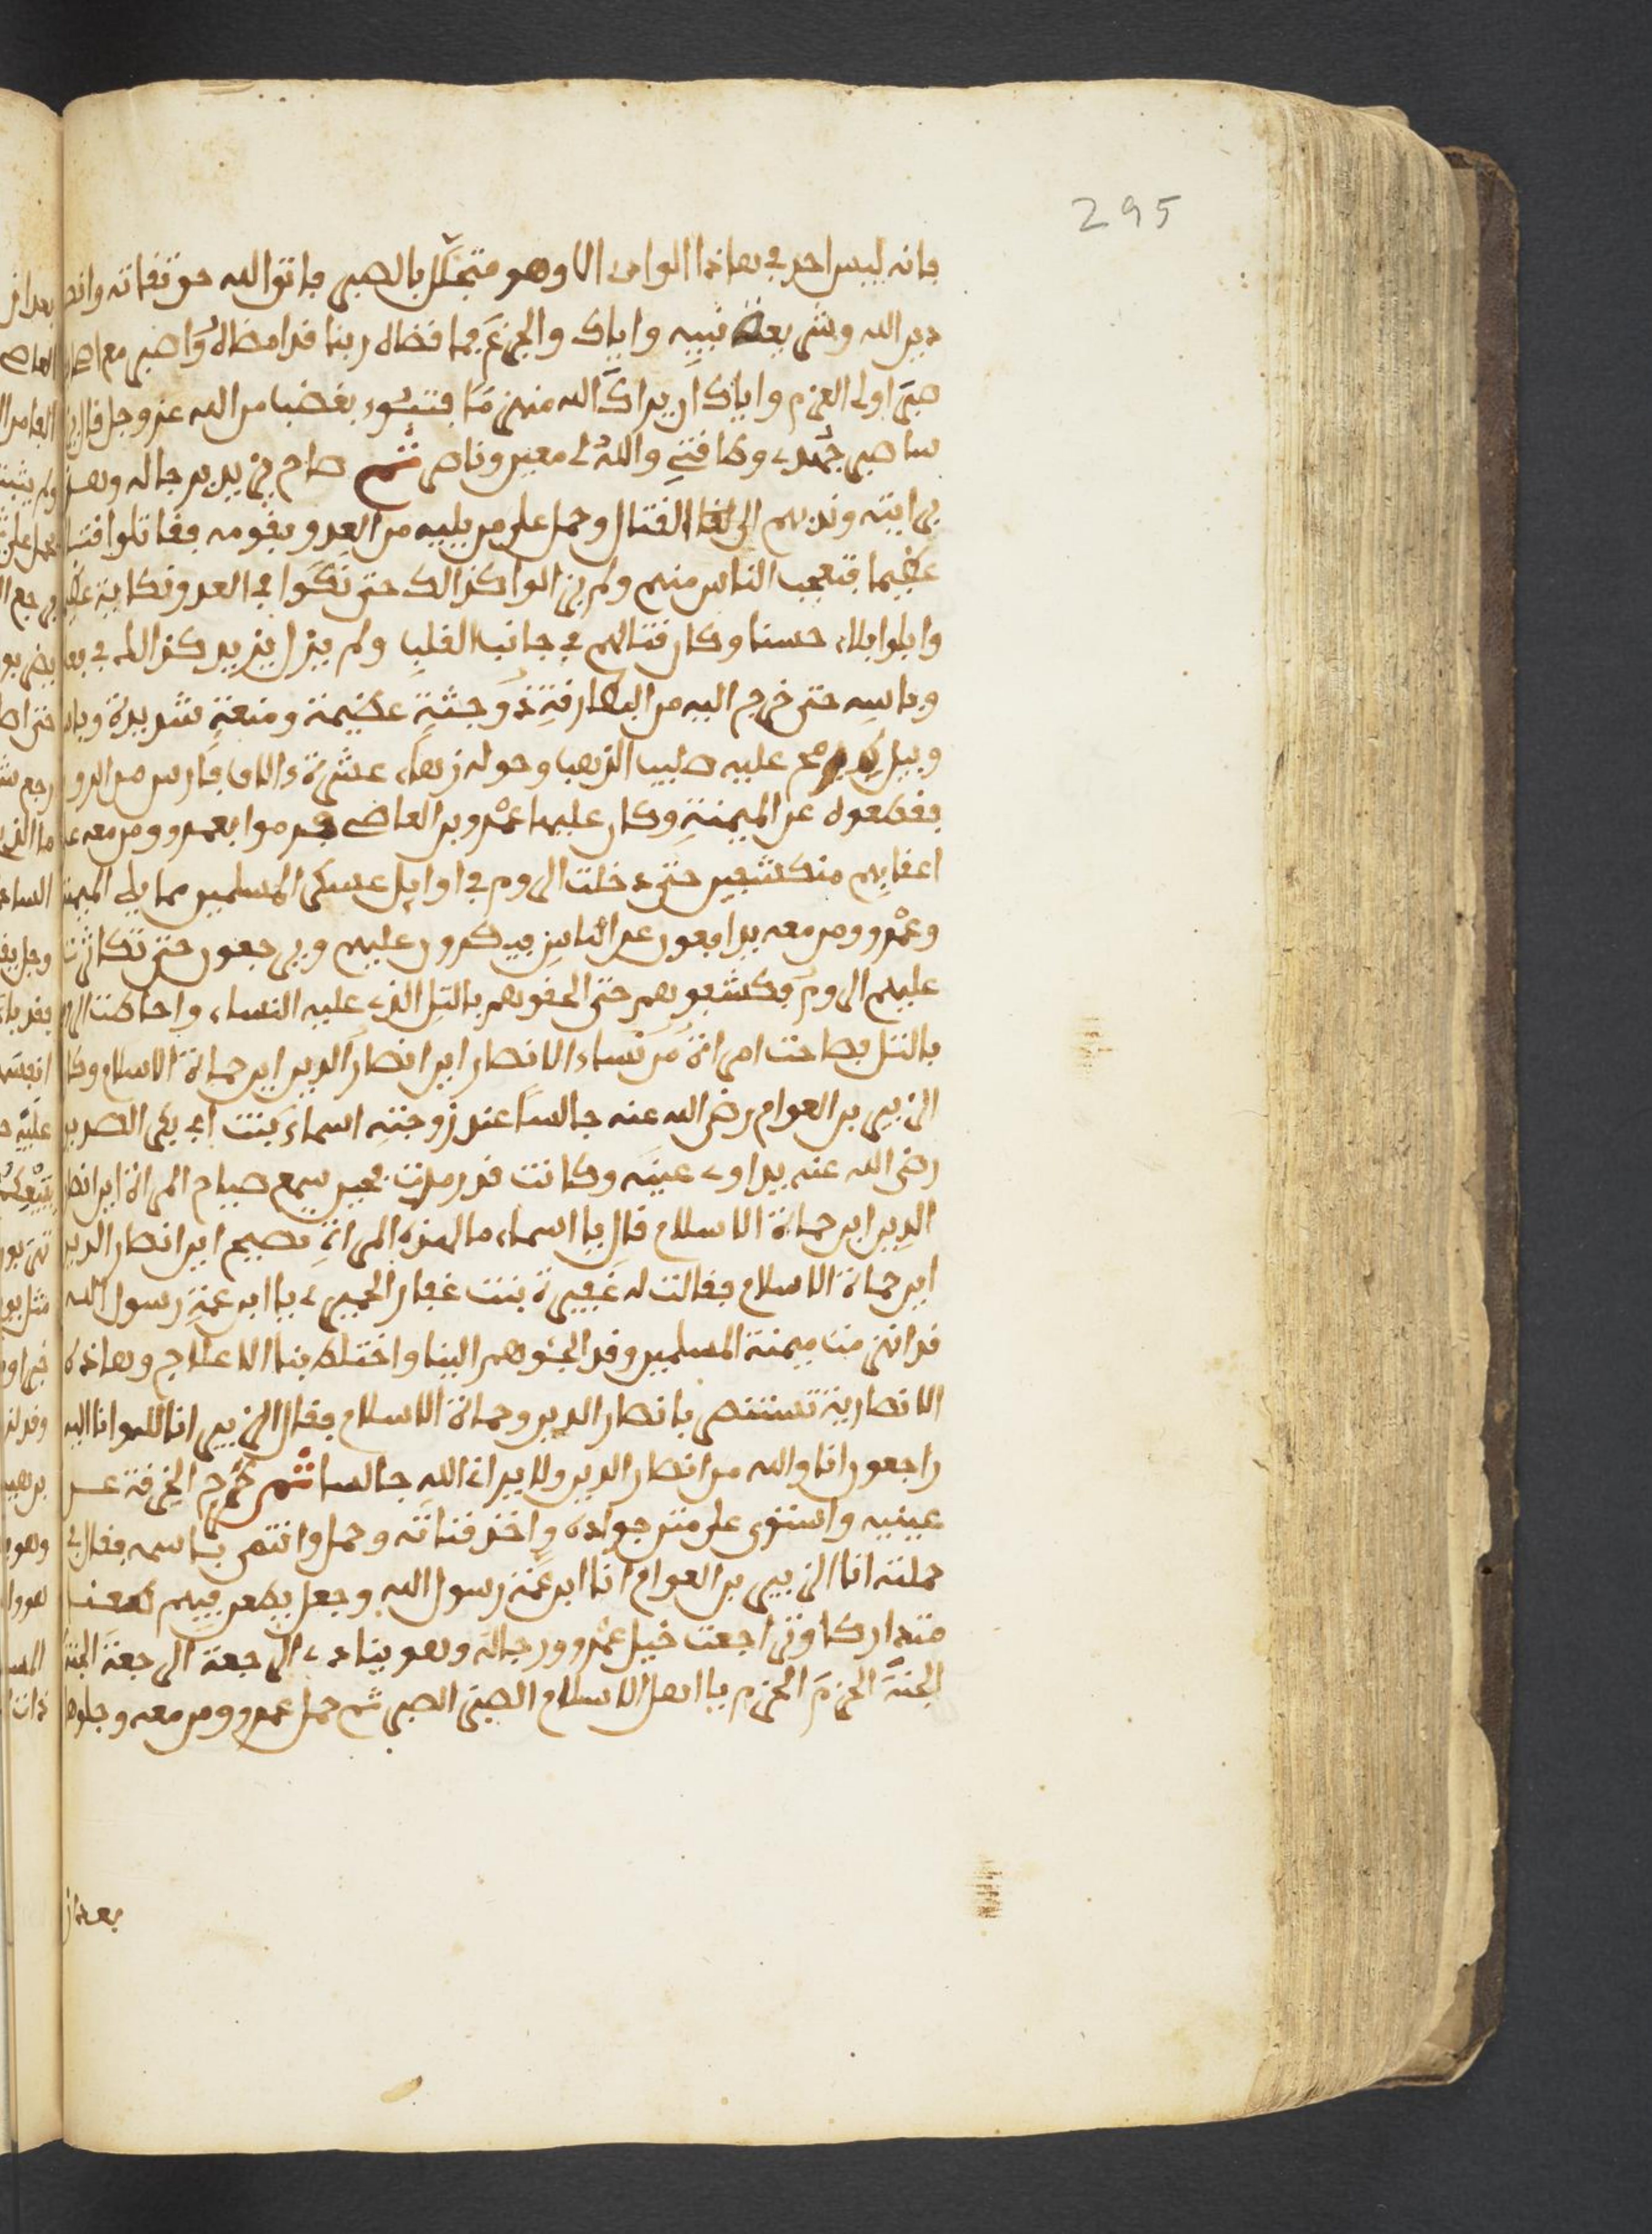 295
فانه ليس احد في هاذا الوادى الا وهو متجمّل بالصبر فاتق الله حق تقاته وانصر
دين الله وشريعة نبيه واياك والجزع فما قضاه ربنا قد امضاه واصبر مع اصحابك
صبر اولى العزم واياك ان يراك الله منهزما فتبوء بغضب من الله عز وجل قال يزيد
ساصبر جهدى وطاقتي والله لى معين وناصر ثم صاح يزيد برجاله وهز
رايته وندبهم الى لقاء القتال وحمل على من يليه من العدو بقومه فقاتلوا قتالا
عظيما فتعجب الناس منهم ولم يزالوا كذالك حتى نكوا في العدو نكاية عظيمة
وابلوا بلاء حسنا وكان قتالهم في جانب القلب ولم يزل يزيد كذالك في
وباسه حتى خرج اليه من البطارقة ذو جثة عظيمة ومنعة شديدة
وبيده رمح عليه صليب الذهب وحوله زهاء عشرة ءالاف فارس من الروم
فقطعوه عن الميمنة وكان عليها عمرو بن العاص فرموا بعمرو ومن معه على
اعقابهم منكشفين حتى دخلت الروم في اوايل عسكر المسلمين مما يلى الميمنة
وعمرو ومن معه يدافعون عن الناس فيكرون عليهم ويرجعون حتى تكاثرت
عليهم الروم فكشفوهم حتى الحقوهم بالتل الذى عليه النساء واحاطت الروم
بالتل فصاحت امراة من نساء الانصار اين انصار الدين اين حماة الاسلام وكان
الزبير بن العوام رضى الله عنه جالسا عند زوجته اسماء بنت ابى بكر الصديق
رضى الله عنه يداوى عينه وكانت قد رمدت فحين سمع صياح المراة اين انصار
الدين اين حماة الاسلام قال يا اسماء ما لهذه المراة تصيح اين انصار الدين
اين حماة الاسلام فقالت له عفيرة بنت غفار الحميرى يا ابن عمة رسول الله
قد انهزمت ميمنة المسلمين وقد الجئوهم الينا واختلط بنا الاعلاج وهاذه
الانصارية تستنصر بانصار الدين وحماة الاسلام فقال الزبير انا لله وانا اليه
راجعون انا والله من انصار الدين ولا يرانى الله جالسا ثم طرح الخرقة عن
عينيه واستوى على متن جواده واخذ قناته وحمل وانتمى باسمه فقال في
حملته انا الزبير بن العوام انا ابن عمة رسول الله وجعل يطعن فيهم طعنا
متداركا وتراجعت خيل عمرو ورجاله وهو ينادى الرجعة الرجعة الجنة
الجنة الحزم الحزم يا اهل الاسلام الصبر الصبر ثم حمل عمرو ومن معه وجلوها
بعد ان